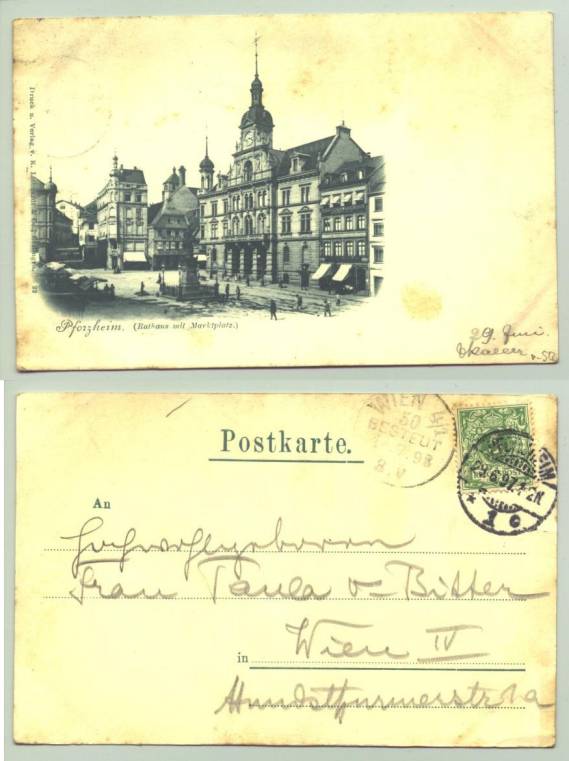 Druck u. Verlag v.
Pforzheim. (Rathaus mit Marktplatz.)
29. Juni.
Postkarte.
WIEN 4/1
50
BESTELLT
7.98
8.V
29.6.9
1 c
An
Hochwohlgeboren
Frau Paula v. Bitter
in Wien IV
Hundsthurmerstr 1a